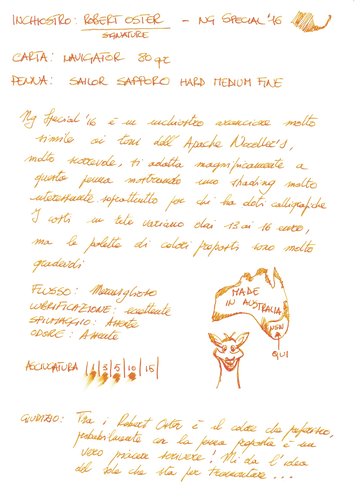 INCHIOSTRO: ROBERT OSTER - NG SPECIAL '16
SIGNATURE
CARTA: NAVIGATOR 80 gr
PENNA: SAILOR SAPPORO HARD MEDIUM FINE
Ng Special '16 è un inchiostro arancione molto
simile ai toni dell' Apache Noodler's,
molto scorrevole, si adatta magnificamente a
questa penna mostrando uno shading molto
interessante soprattutto per chi ha doti calligrafiche
I costi in rete variano dai 13 ai 16 euro,
ma la paletta di colori proposti sono molto
gradevoli
FLUSSO: Meraviglioso
LUBRIFICAZIONE: eccellente
SPIUMAGGIO: Assente
ODORE: Assente
MADE
IN AUSTRALIA
NSW
QUI
ASCIUGATURA 1 3 5 10 15
GIUDIZIO: Tra i Robert Oster è il colore che preferisco,
probabilmente con la penna proposta è un
vero piacere scrivere! Mi da l'idea
del sole che sta per tramontare...